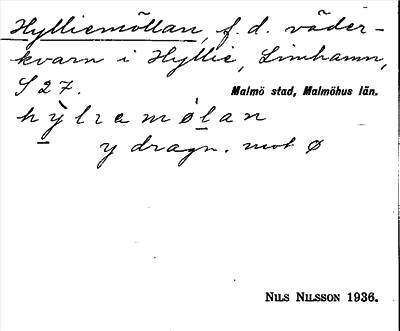 Hylliemöllan, f.d. väder-
kvarn i Hyllie, Limhamn,
S 27. Malmö stad, Malmöhus län.
hỳlɛmølan
y dragn. mot ø
NILS NILSSON 1936.